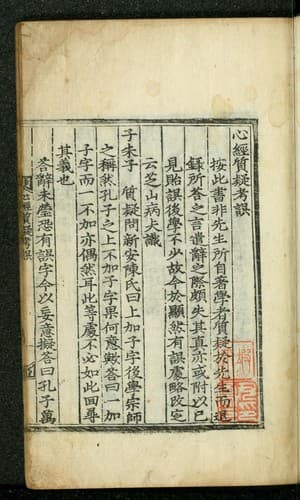 心經質疑考誤
按此書非先生所自著學者質疑於先生而退
錄所答之言遣辭之際頗失其眞亦或附以己
見貽誤後學不少故今於顯然有誤處略改定
云芝山病夫識
子朱子 質疑問新安陳氏曰上加子字後學宗師
之稱然孔子之上不加子字果何意歟答曰一加
子字而一不加亦偶然耳此等處不必如此回尋
其義也
答辭未瑩恐有誤字今以妄意擬答曰孔子萬
心經質疑考誤